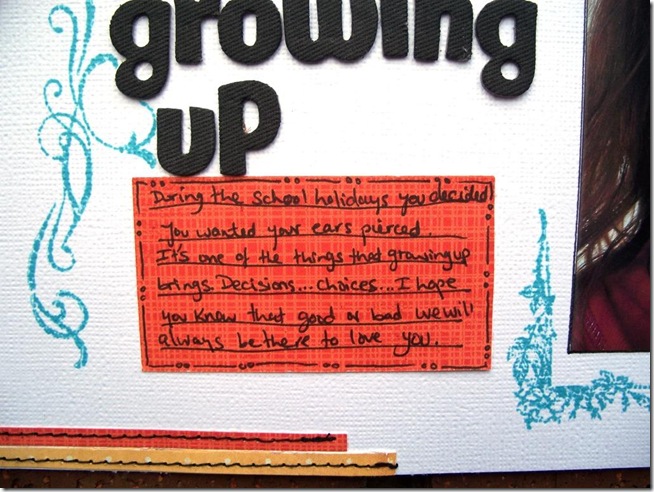 growing
up
During the school holidays you decided
you wanted your ears pierced.
It's one of the things that growing up
brings. Decisions...choices...I hope
you know that good or bad we will
always be there to love you.